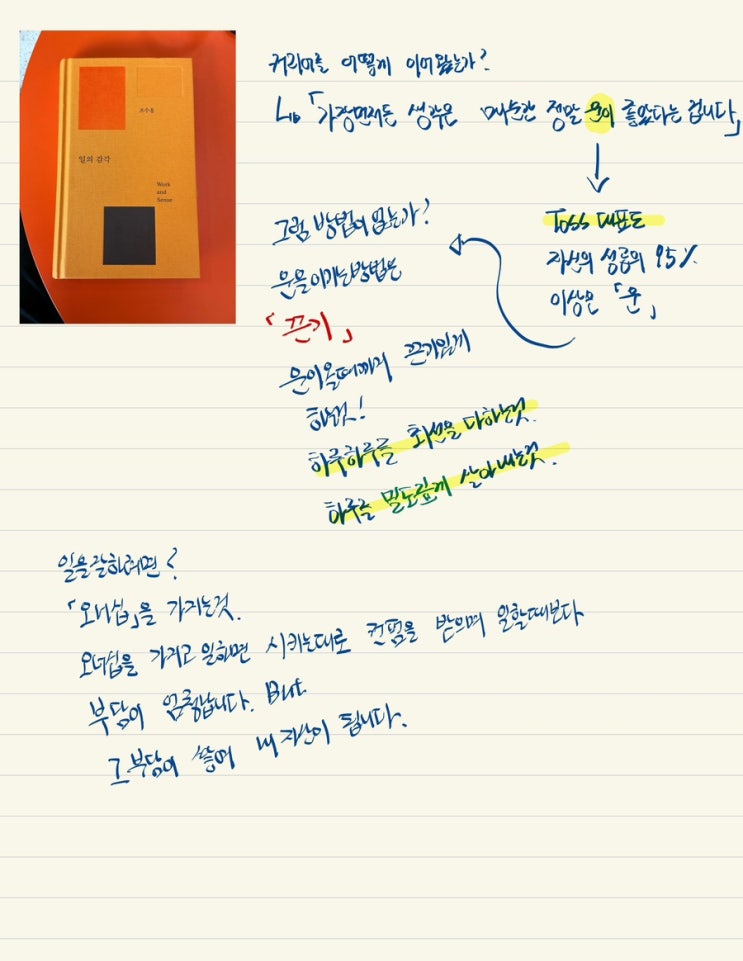 조수용
일의 감각
Work
and
Sense
커리어를 어떻게 이어왔는가?
↳ 「가장먼저든 생각은 매순간 정말 운이 좋았다는 겁니다」
Toss 대표도
자신의 성공의 95%
이상은 「운」
그럼 방법이 있는가?
운을이기는방법은
「끈기」
운이올때까지 끈기있게
하는것!
하루하루를 최선을 다하는것.
하루를 밀도있게 살아내는것.
일을잘하려면?
「오너십」을 가지는것.
오너십을 가지고 일하면 시키는대로 컨펌을 받으며 일할때보다
부담이 엄청납니다. But
그 부담이 쌓여 내 자산이 됩니다.